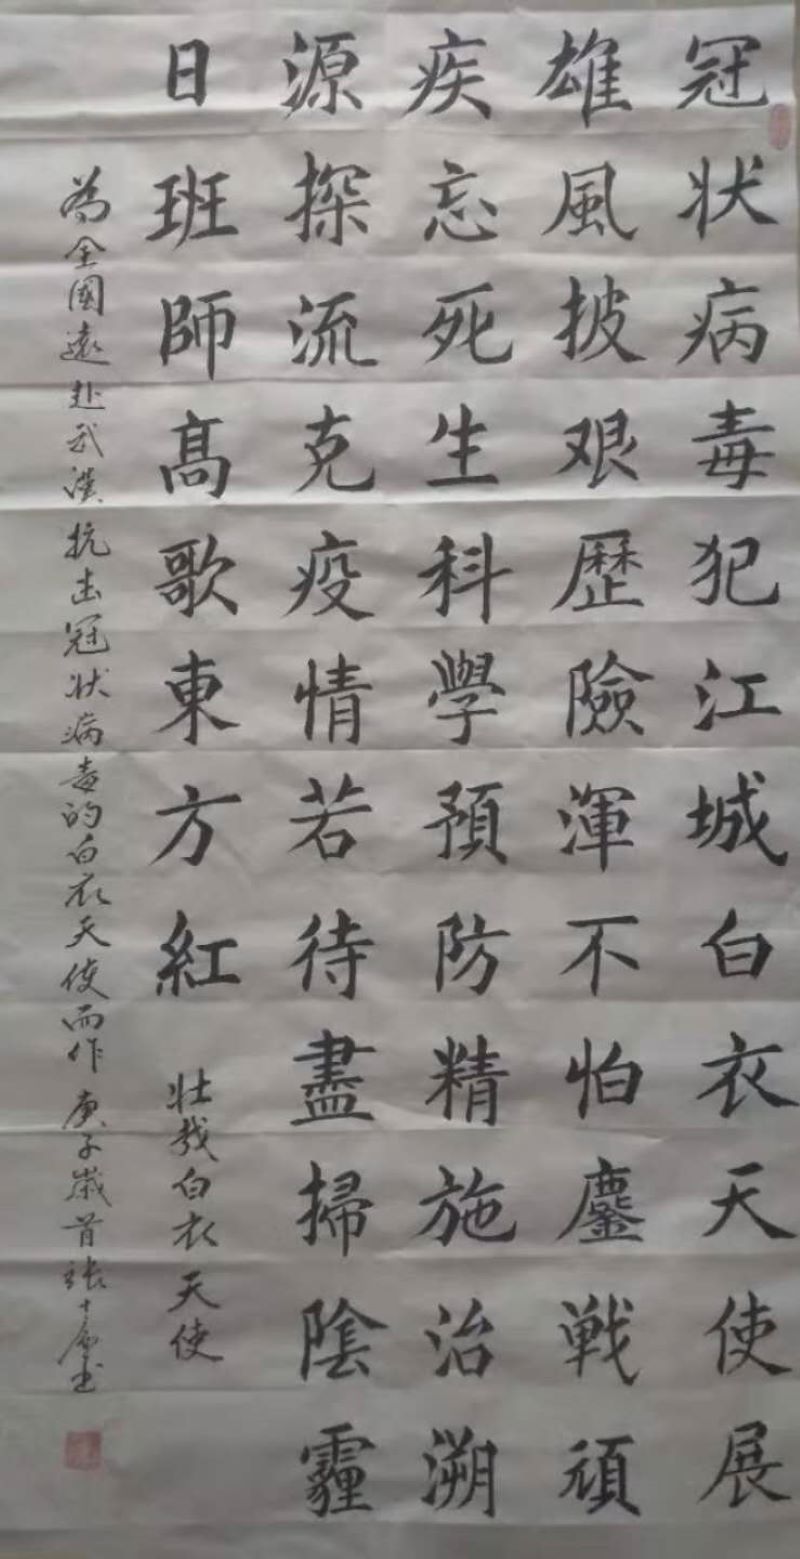 冠状病毒犯江城白衣天使展
雄風披艱歷險渾不怕鏖戦頑
疾忘死生科學預防精施治溯
源探流克疫情若待盡掃陰霾
日班師高歌東方紅
壮哉白衣天使
為全國遠赴武漢抗击冠状病毒的白衣天使而作 庚子歲首張十 书